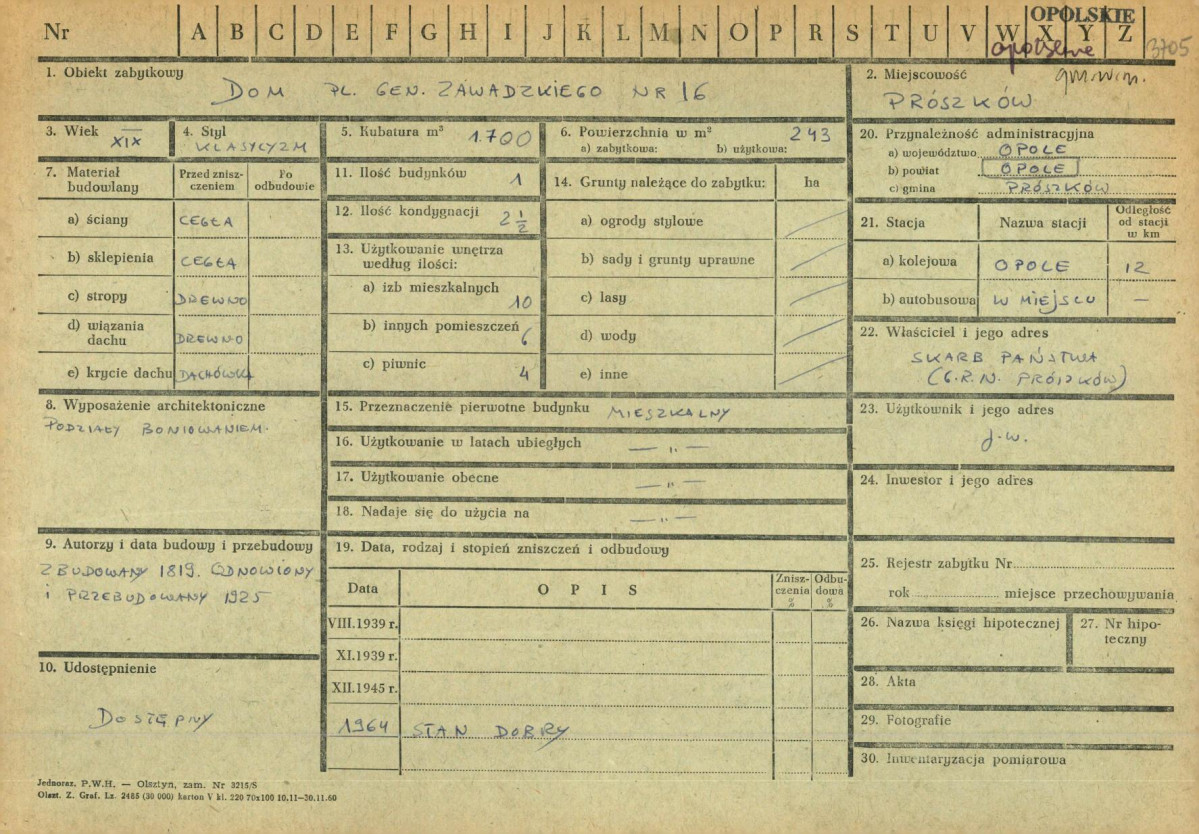 Nr A B C D E F G H I J K L M N O P R S T U V W X Y Z
OPOLSKIE
opolskie
3705
gm. w m.
1. Obiekt zabytkowy
DOM PL. GEN. ZAWADZKIEGO NR 16
2. Miejscowość
PRÓSZKÓW
3. Wiek
XIX
4. Styl
KLASYCYZM
5. Kubatura m³ 1.700
6. Powierzchnia w m² 243
a) zabytkowa: b) użytkowa:
7. Materiał budowlany
Przed zniszczeniem
Po odbudowie
a) ściany CEGŁA
b) sklepienia CEGŁA
c) stropy DREWNO
d) wiązania dachu DREWNO
e) krycie dachu DACHÓWKA
8. Wyposażenie architektoniczne
PODZIAŁY BONIOWANIEM.
9. Autorzy i data budowy i przebudowy
ZBUDOWANY 1819. ODNOWIONY
i PRZEBUDOWANY 1925
10. Udostępnienie
DOSTĘPNY
11. Ilość budynków 1
12. Ilość kondygnacji 2 1/2
13. Użytkowanie wnętrza
według ilości:
a) izb mieszkalnych 10
b) innych pomieszczeń 6
c) piwnic 4
14. Grunty należące do zabytku: ha
a) ogrody stylowe
b) sady i grunty uprawne
c) lasy
d) wody
e) inne
15. Przeznaczenie pierwotne budynku MIESZKALNY
16. Użytkowanie w latach ubiegłych — „ —
17. Użytkowanie obecne — „ —
18. Nadaje się do użycia na — „ —
19. Data, rodzaj i stopień zniszczeń i odbudowy
Data OPIS Zniszczenia % Odbudowa %
VIII.1939 r.
XI.1939 r.
XII.1945 r.
1964 STAN DOBRY
20. Przynależność administracyjna
a) województwo OPOLE
b) powiat OPOLE
c) gmina PRÓSZKÓW
21. Stacja Nazwa stacji Odległość od stacji w km
a) kolejowa OPOLE 12
b) autobusowa W MIEJSCU —
22. Właściciel i jego adres
SKARB PAŃSTWA
(G.R.N. PRÓSZKÓW)
23. Użytkownik i jego adres
j.w.
24. Inwestor i jego adres
25. Rejestr zabytku Nr
rok miejsce przechowywania
26. Nazwa księgi hipotecznej
27. Nr hipoteczny
28. Akta
29. Fotografie
30. Inwentaryzacja pomiarowa
Jednoraz. P.W.H. — Olsztyn, zam. Nr 3215/S
Olszt. Z. Graf. Lz. 2485 (30 000) karton V kl. 220 70x100 10.11—30.11.60